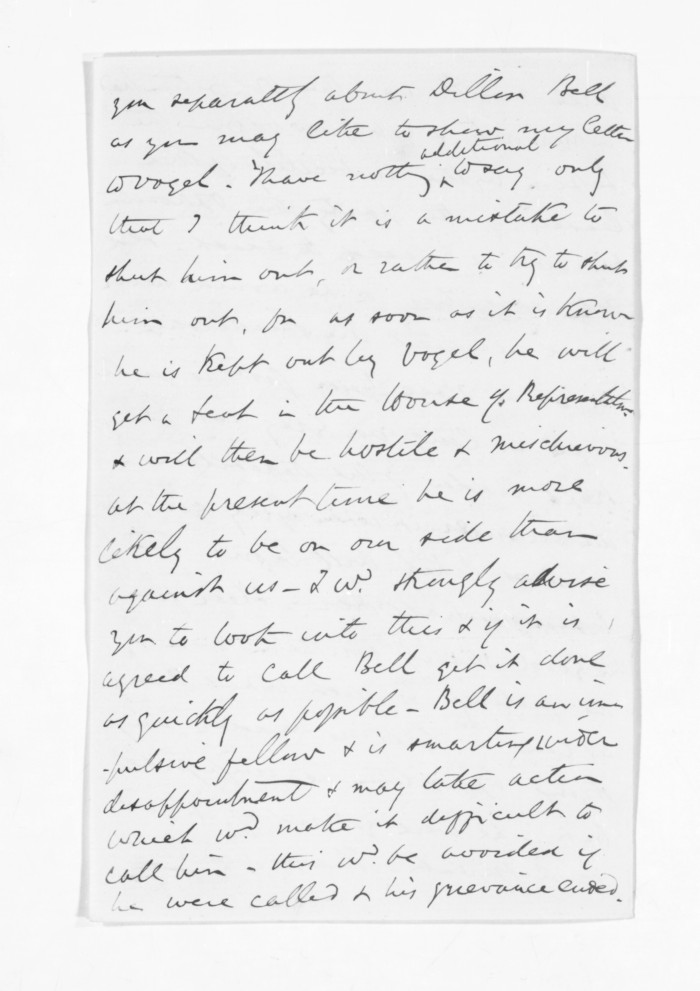 you separately about Dillon Bell
as you may like to show my letter
to Vogel. I have nothing additional to say only
that I think it is a mistake to
shut him out, or rather to try to shut
him out, for as soon as it is known
he is kept out by Vogel, he will
get a seat in the House of Representatives
& will then be hostile & mischievous.
at the present time he is more
likely to be on our side than
against us - I wd. strongly advise
you to look into this & if it is
agreed to call Bell get it done
as quickly as possible - Bell is an im
-pulsive fellow & is smarting under
disappointment & may take action
which wd. make it difficult to
call him - this wd. be avoided if
he were called & his grievance ended.